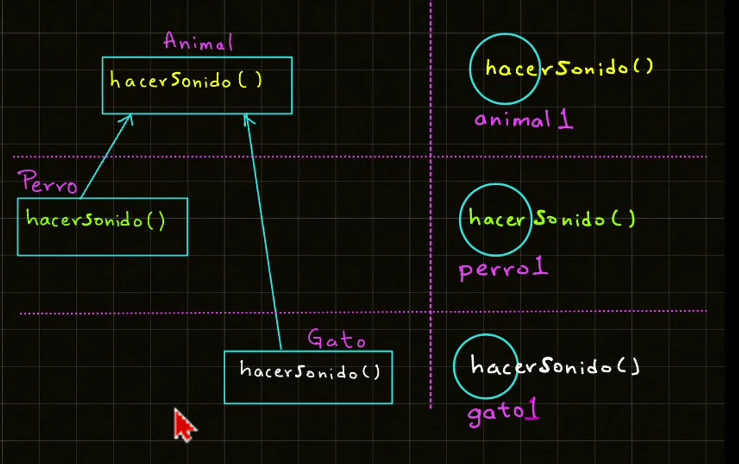 Animal
hacerSonido()
hacerSonido()
animal1
Perro
hacersonido()
hacerSonido()
perro1
Gato
hacerSonido()
hacerSonido()
gato1